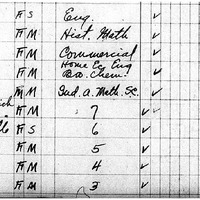 F S Eng. ✓
F M Hist. Math ✓
F M Commercial ✓
Home Ec Eng
F M Bio. Chem. ✓
M M Ind. a. Math. Sc. ✓
F M 7 ✓ ✓
F S 6 ✓
F M 5 ✓
F M 4 ✓
F M 3 ✓